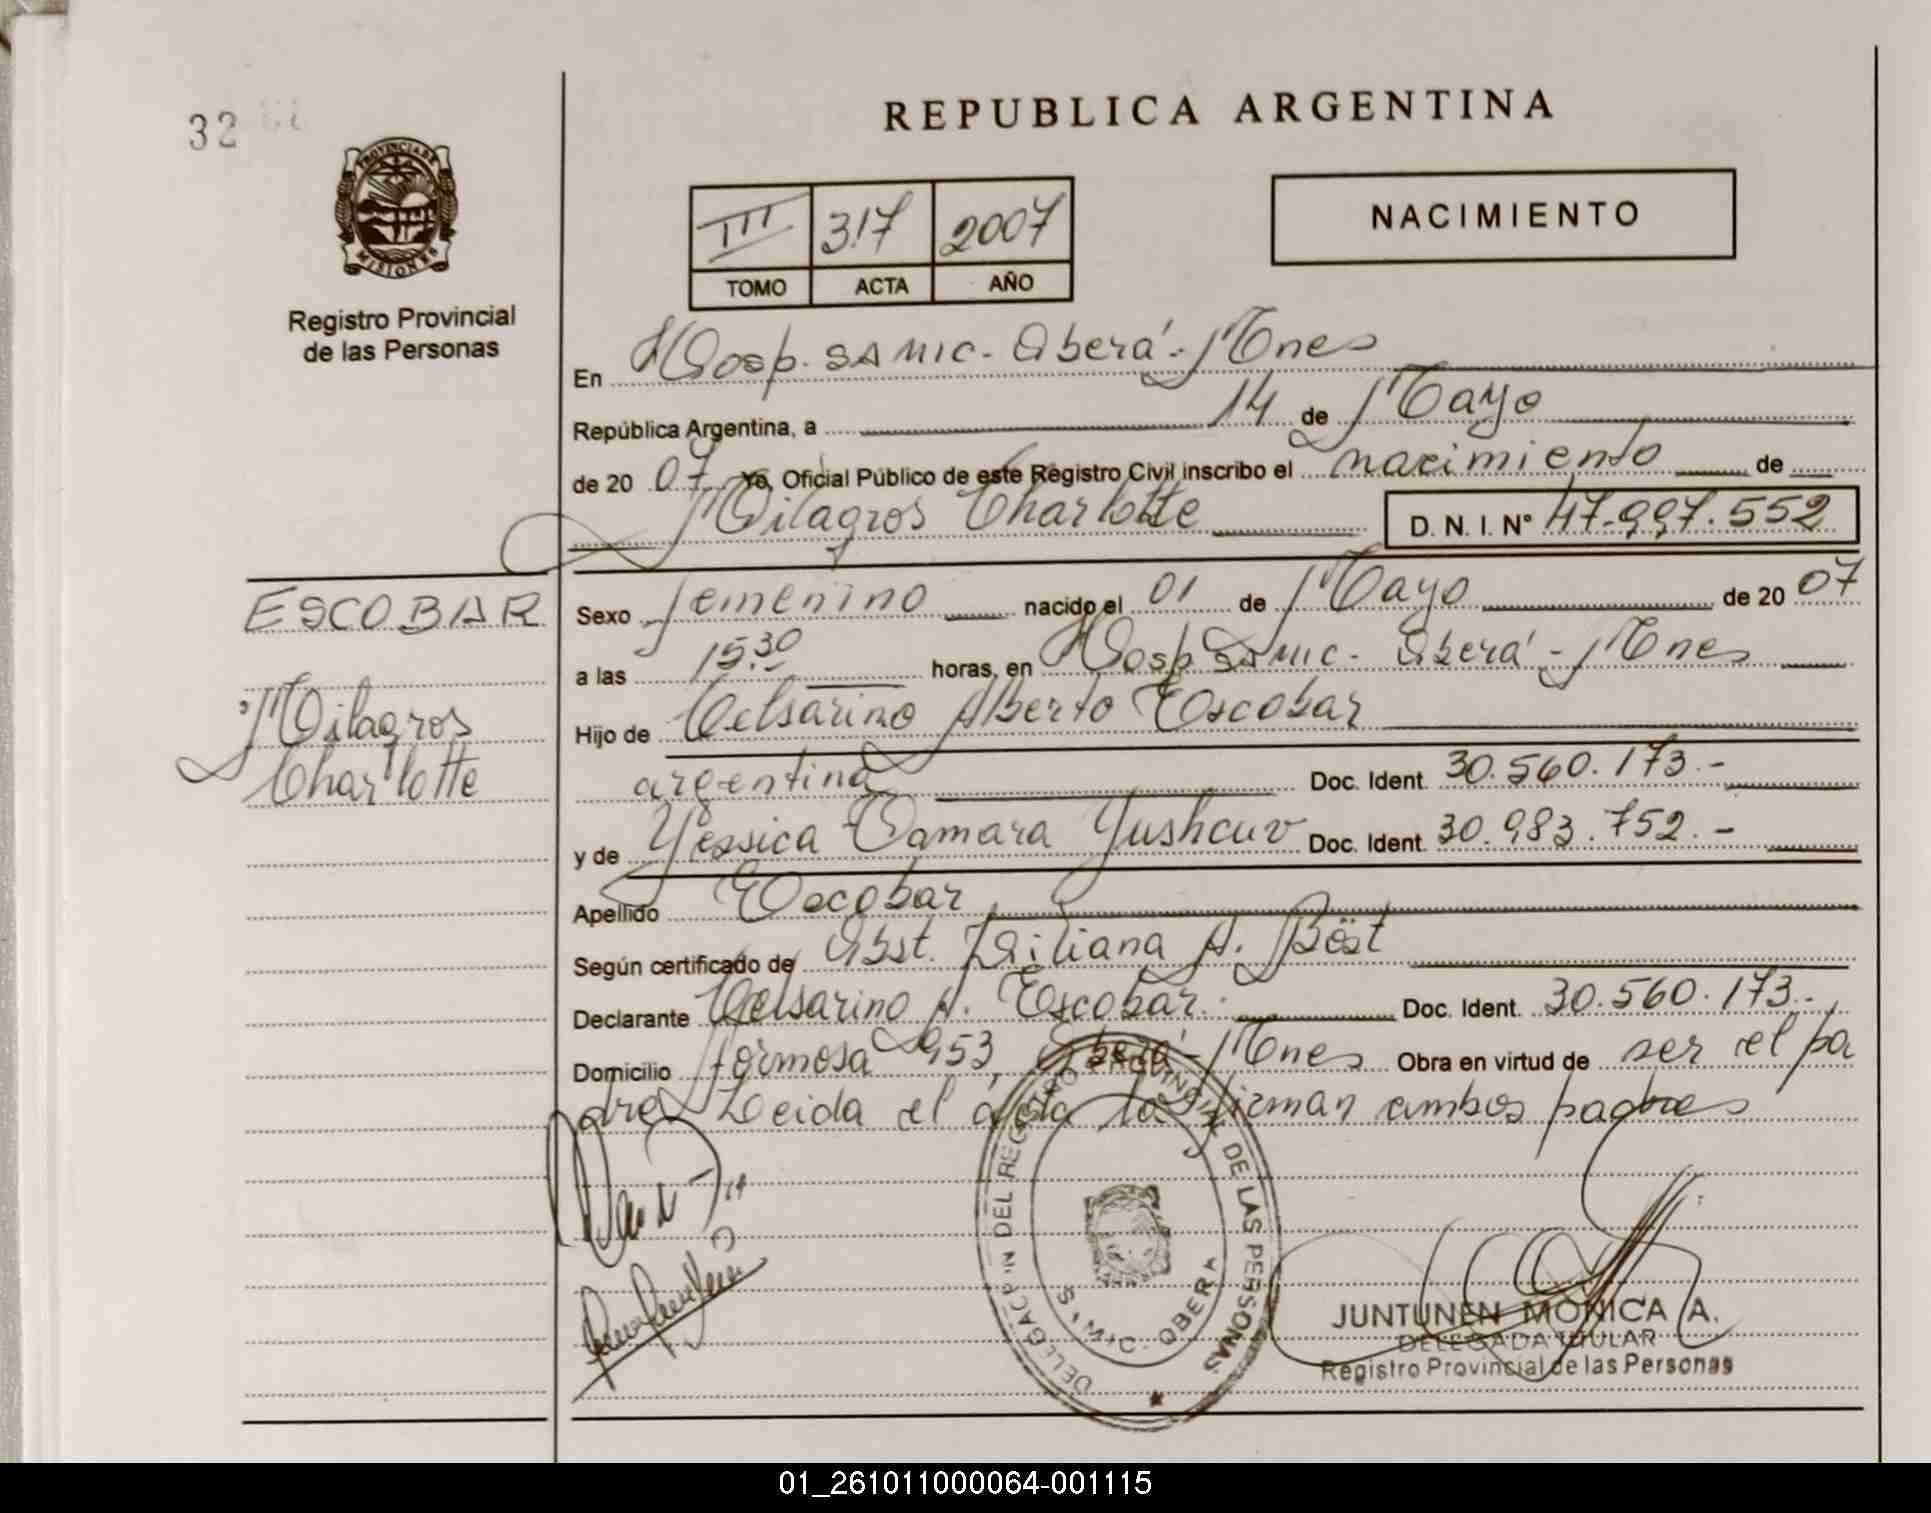 32
REPUBLICA ARGENTINA
PROVINCIA DE MISIONES
Registro Provincial
de las Personas
III 317 2007
TOMO ACTA AÑO
NACIMIENTO
En Hosp. SAMIC - Oberá - Mnes
República Argentina, a 14 de Mayo
de 20 07 Yo, Oficial Público de este Registro Civil inscribo el nacimiento de
Milagros Charlotte D. N. I. N° 47.997.552
ESCOBAR
Milagros
Charlotte
Sexo femenino nacido el 01 de Mayo de 20 07
a las 15.30 horas, en Hosp SAMIC - Oberá - Mnes
Hijo de Celsarino Alberto Escobar
argentina Doc. Ident. 30.560.173.-
y de Yessica Tamara Yushcuv Doc. Ident. 30.983.752.-
Apellido Escobar
Según certificado de Obst. Liliana A. Böst
Declarante Celsarino A. Escobar. Doc. Ident. 30.560.173.-
Domicilio Formosa 953, Oberá - Mnes Obra en virtud de ser el pa
dre Leida el acta la firman ambos padres
DELEGACIN DEL REGISTRO PROVINCIAL DE LAS PERSONAS
OBERA
JUNTUNEN MONICA A.
DELEGADA TITULAR
Registro Provincial de las Personas
01_261011000064-001115